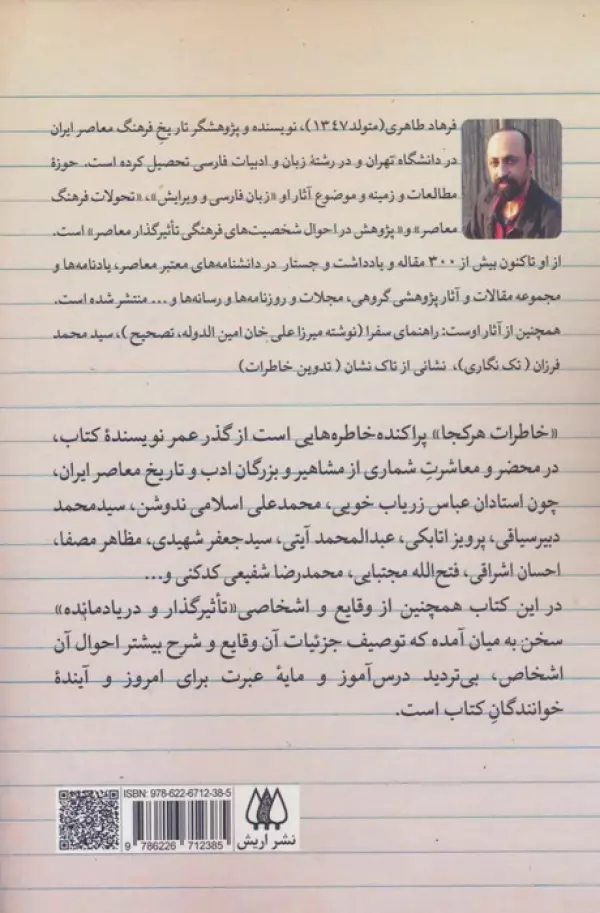 فرهاد طاهری(متولد۱۳۴۷)، نویسنده و پژوهشگر تاریخ فرهنگ معاصر ایران
در دانشگاه تهران و در رشتهٔ زبان و ادبیات فارسی تحصیل کرده است. حوزهٔ
مطالعات و زمینه و موضوع آثار او «زبان فارسی و ویرایش»، «تحولات فرهنگ
معاصر» و« پژوهش در احوال شخصیت‌های فرهنگی تأثیرگذار معاصر» است.
از او تاکنون بیش از ۳۰۰ مقاله و یادداشت و جستار در دانشنامه‌های معتبر معاصر، یادنامه‌ها و
مجموعه مقالات و آثار پژوهشی گروهی، مجلات و روزنامه‌ها و رسانه‌ها و... منتشر شده است.
همچنین از آثار اوست: راهنمای سفرا (نوشته میرزا علی خان امین الدوله، تصحیح )، سید محمد
فرزان ( تک نگاری)، نشانی از تاک نشان ( تدوین خاطرات)
«خاطرات هرکجا» پراکنده‌خاطره‌هایی است از گذر عمر نویسندهٔ کتاب،
در محضر و معاشرتِ شماری از مشاهیر و بزرگان ادب و تاریخ معاصر ایران،
چون استادان عباس زریاب خویی، محمدعلی اسلامی ندوشن، سیدمحمد
دبیرسیاقی، پرویز اتابکی، عبدالمحمد آیتی، سیدجعفر شهیدی، مظاهر مصفا،
احسان اشراقی، فتح‌الله مجتبایی، محمدرضا شفیعی کدکنی و...
در این کتاب همچنین از وقایع و اشخاصی«تأثیرگذار و دریادمانده»
سخن به میان آمده که توصیف جزئیات آن وقایع و شرح بیشتر احوال آن
اشخاص، بی‌تردید درس‌آموز و مایهٔ عبرت برای امروز و آیندهٔ
خوانندگانِ کتاب است.
ISBN: 978-622-6712-38-5
9 786226 712385
نشر اریش